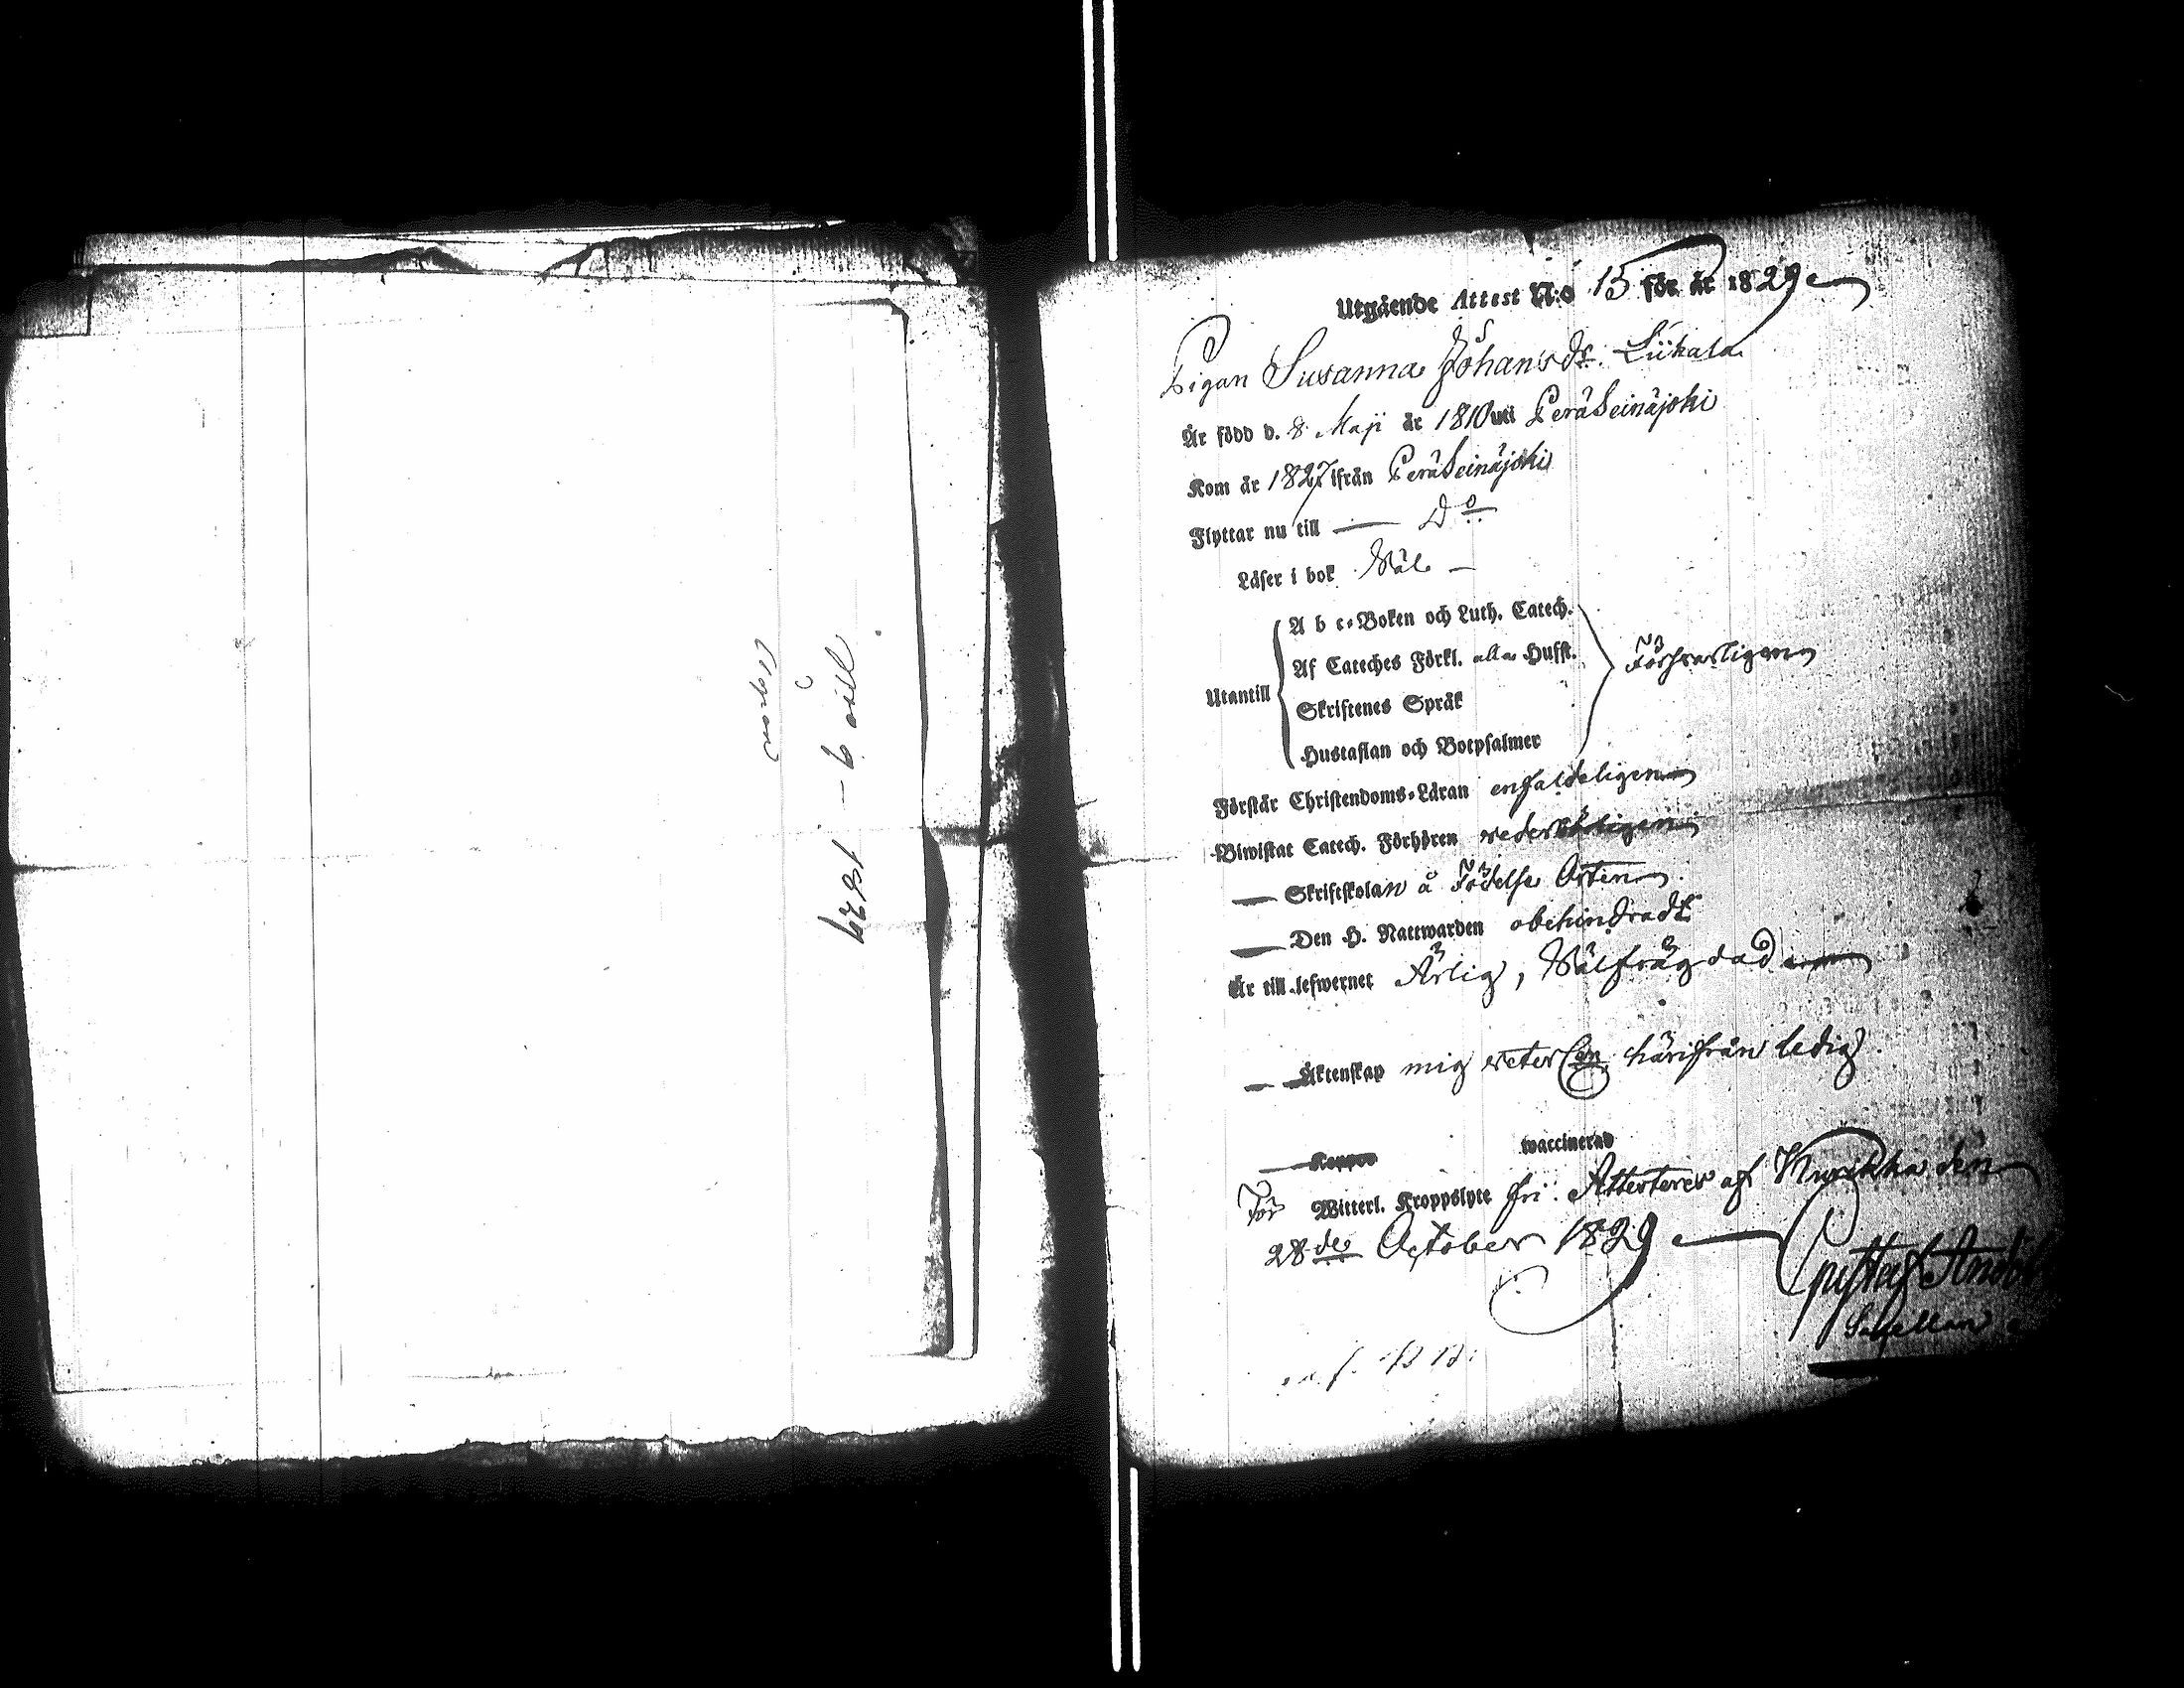 Utgående Attest N:o 15 för år 1829
Pigan Susanna Johansdr. Liikala
Är född d. 8 Maji år 1810 uti PeräSeinäjoki
Kom år 1827 ifrån PeräSeinäjoki
Flyttar nu till — Do
Läser i bok Väl —
Utantill
A b c-Boken och Luth. Catech.
Af Cateches Förkl. allas Husft.
Skriftenes Språk
Hustaflan och Botpsalmer
Försvarligen
Förstår Christendoms-Läran enfaldeligen
Biwistat Catech. Förhören vederbörligen
— Skriftskolan å Födelse Orten
— Den H. Nattwarden obehindradt
Är till lefwernet Ärlig, Välfrägdad
— Äktenskap mig veterl.en härifrån ledig
— Koppor waccinerad
För Witterl. Kroppslyte fri. Attesteras af Kurikka den
28de October 1829 — Gustaf
Capellan
1829